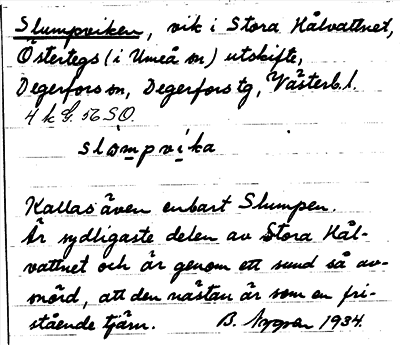 Slumpviken, vik i Stora Hålvattnet,
Östertegs (i Umeå sn) utskifte,
Degerfors sn, Degerfors tg, Västerb. l.
4 k G. 56 SO.
slòmpvìka
Kallas även enbart Slumpen.
Är sydligaste delen av Stora Hål-
vattnet och är genom ett sund så av-
snörd, att den nästan är som en fri-
stående tjärn. B. 1934.